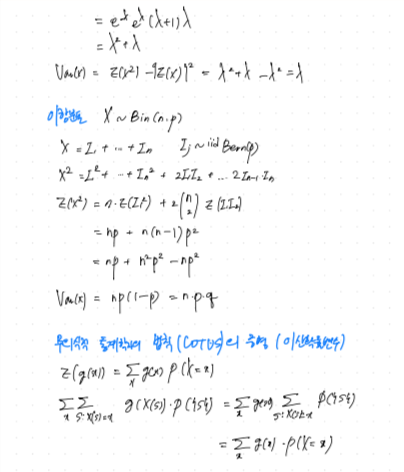 = e^-λ e^λ (λ+1) λ
= λ² + λ
Var(x) = E(x²) - {E(x)}² = λ² + λ - λ² = λ
이항분포 X ~ Bin(n.p)
X = I₁ + ... + In Ij ~ iid Bern(p)
X² = I₁² + ... + In² + 2I₁I₂ + ... 2In-1·In
E(X²) = n·E(I₁²) + 2(n 2) E(I₁I₂)
= np + n(n-1)p²
= np + n²p² - np²
Var(x) = np(1-p) = n·p·q
무의식적 통계학자의 법칙(LOTUS)의 증명 (이산확률변수)
E(g(x)) = Σx g(x) P(X=x)
Σx Σs:X(s)=x g(X(s))·P({s}) = Σx g(x) Σs:X(s)=x P({s})
= Σx g(x)·P(X=x)